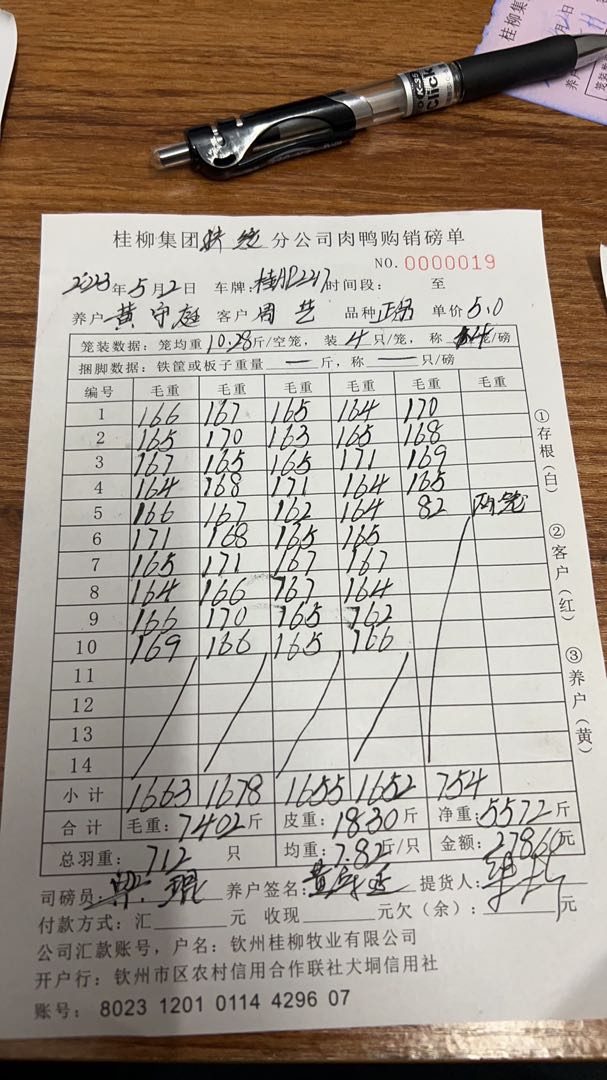 桂柳集团
养户
Click
桂柳集团 分公司肉鸭购销磅单
NO. 0000019
2023年5月2日 车牌: 时间段: 至
养户 黄守庭 客户 周 品种 单价 5.0
笼装数据: 笼均重 10.28 斤/空笼, 装 4 只/笼, 称 笼/磅
捆脚数据: 铁筐或板子重量 — 斤, 称 — 只/磅
编号 毛重 毛重 毛重 毛重 毛重 毛重
1 166 167 165 164 170
2 165 170 163 165 168
3 167 165 165 171 169
4 164 168 171 164 165
5 166 167 162 164 82 两笼
6 171 168 165 165
7 165 171 167 167
8 164 166 167 164
9 166 170 165 162
10 169 166 165 166
11
12
13
14
小计 1663 1678 1655 1652 754
合计 毛重: 7402斤 皮重: 1830斤 净重: 5572斤
总羽重: 712 只 均重: 7.82斤/只 金额: 27860元
司磅员: 养户签名: 黄守庭 提货人:
付款方式: 汇 元 收现 元欠(余): 元
公司汇款账号, 户名: 钦州桂柳牧业有限公司
开户行: 钦州市区农村信用合作联社犬垌信用社
账号: 8023 1201 0114 4296 07
①存根(白)
②客户(红)
③养户(黄)